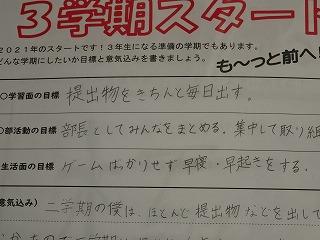 3学期スタート
2021年のスタートです!3年生になる準備の学期でもあります。
どんな学期にしたいか目標と意気込みを書きましょう。
も〜っと前へ!
○学習面の目標 提出物をきちんと毎日出す。
○部活動の目標 部長としてみんなをまとめる。集中して取り組
生活面の目標 ゲームばかりせず早寝・早起きをする。
意気込み) 二学期の僕は、ほとんど提出物などを出して